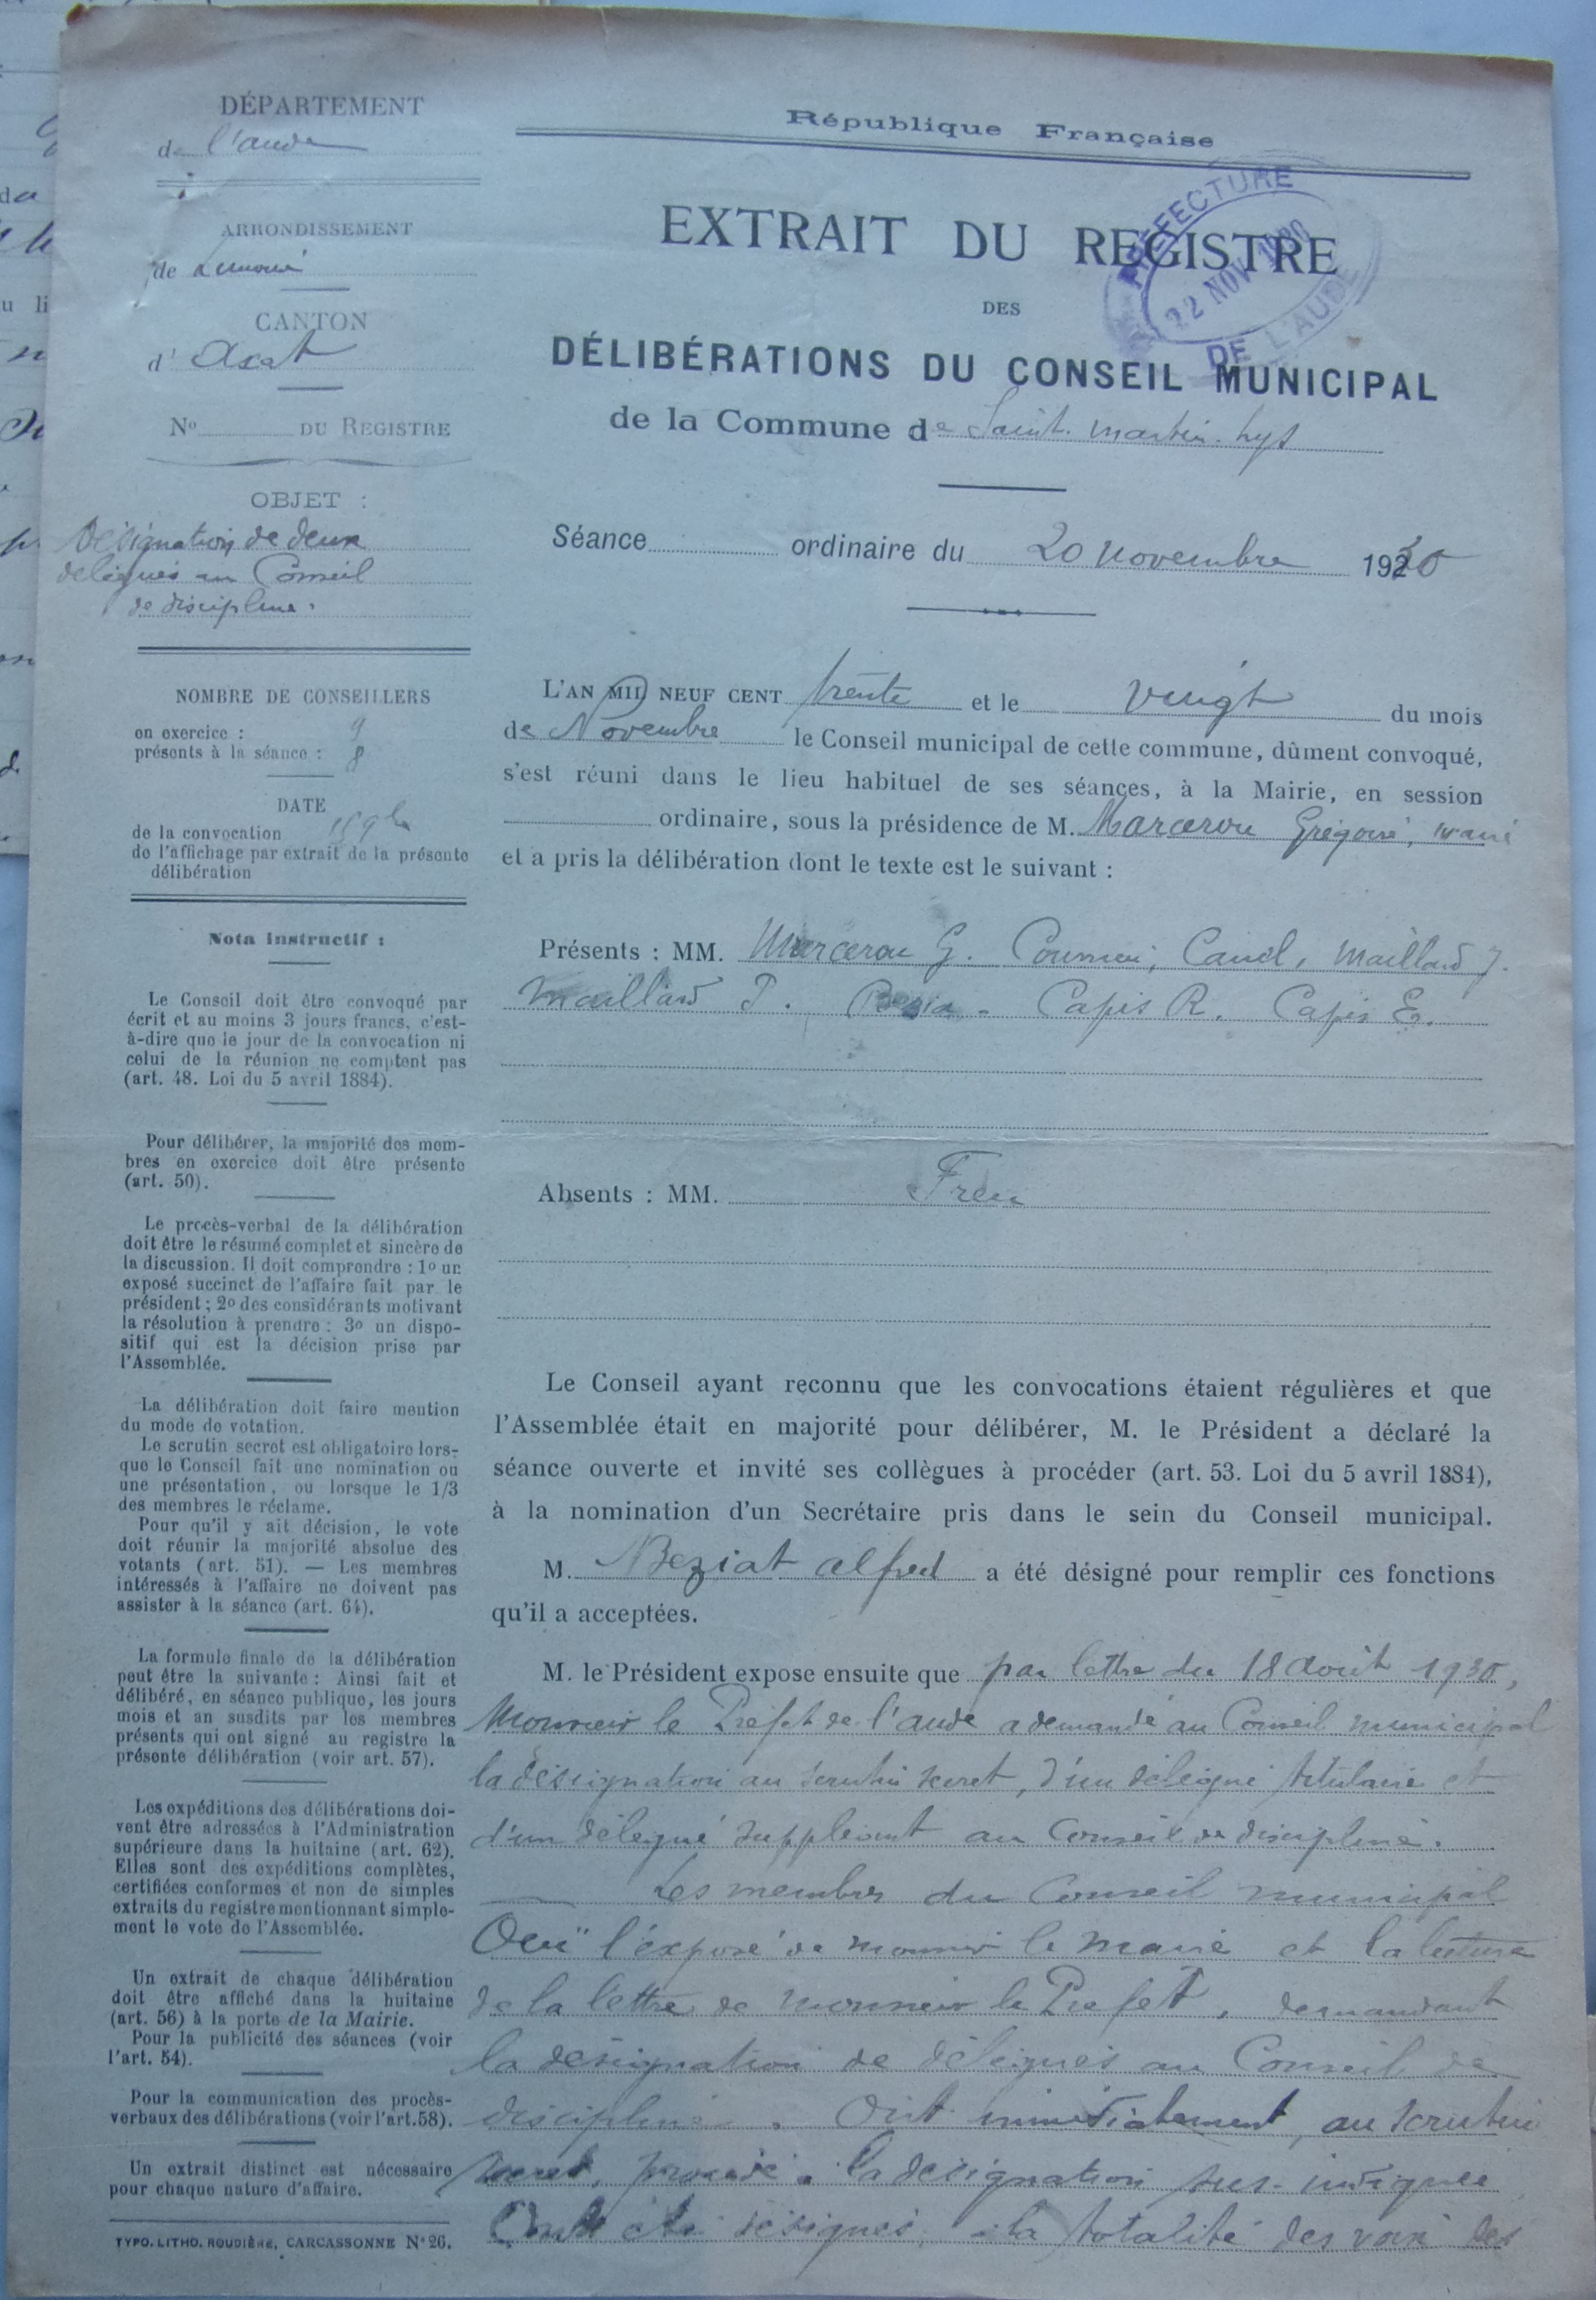 DÉPARTEMENT
de l'aude
ARRONDISSEMENT
de Limoux
CANTON
d' Axat
No DU REGISTRE
OBJET :
Désignation de deux
délégués au Conseil
de discipline.
NOMBRE DE CONSEILLERS
en exercice : 9
présents à la séance : 8
DATE
de la convocation 15 9bre
de l'affichage par extrait de la présente
délibération
Nota instructif :
Le Conseil doit être convoqué par
écrit et au moins 3 jours francs, c'est-
à-dire que le jour de la convocation ni
celui de la réunion ne comptent pas
(art. 48. Loi du 5 avril 1884).
Pour délibérer, la majorité des mem-
bres en exercice doit être présente
(art. 50).
Le procès-verbal de la délibération
doit être le résumé complet et sincère de
la discussion. Il doit comprendre : 1o un
exposé succinct de l'affaire fait par le
président ; 2o des considérants motivant
la résolution à prendre : 3o un dispo-
sitif qui est la décision prise par
l'Assemblée.
La délibération doit faire mention
du mode de votation.
Le scrutin secret est obligatoire lors-
que le Conseil fait une nomination ou
une présentation, ou lorsque le 1/3
des membres le réclame.
Pour qu'il y ait décision, le vote
doit réunir la majorité absolue des
votants (art. 51). — Les membres
intéressés à l'affaire ne doivent pas
assister à la séance (art. 64).
La formule finale de la délibération
peut être la suivante : Ainsi fait et
délibéré, en séance publique, les jours
mois et an susdits par les membres
présents qui ont signé au registre la
présente délibération (voir art. 57).
Les expéditions des délibérations doi-
vent être adressées à l'Administration
supérieure dans la huitaine (art. 62).
Elles sont des expéditions complètes,
certifiées conformes et non de simples
extraits du registre mentionnant simple-
ment le vote de l'Assemblée.
Un extrait de chaque délibération
doit être affiché dans la huitaine
(art. 56) à la porte de la Mairie.
Pour la publicité des séances (voir
l'art. 54).
Pour la communication des procès-
verbaux des délibérations (voir l'art. 58).
Un extrait distinct est nécessaire
pour chaque nature d'affaire.
TYPO. LITHO. ROUDIÈRE, CARCASSONNE No 26.
République Française
EXTRAIT DU REGISTRE
PRÉFECTURE
22 NOV 1930
DE L'AUDE
DES
DÉLIBÉRATIONS DU CONSEIL MUNICIPAL
de la Commune de Saint. Martin. Lys
Séance ordinaire du 20 Novembre 1930
L'AN MIL NEUF CENT trente et le vingt du mois
de Novembre le Conseil municipal de cette commune, dûment convoqué,
s'est réuni dans le lieu habituel de ses séances, à la Mairie, en session
ordinaire, sous la présidence de M. Marcerou Grégoire, maire
et a pris la délibération dont le texte est le suivant :
Présents : MM. Marcerou G. Canel, Maillard J.
Maillard P. Capis R. Capis E.
Absents : MM. Freu
Le Conseil ayant reconnu que les convocations étaient régulières et que
l'Assemblée était en majorité pour délibérer, M. le Président a déclaré la
séance ouverte et invité ses collègues à procéder (art. 53. Loi du 5 avril 1884),
à la nomination d'un Secrétaire pris dans le sein du Conseil municipal.
M. Beziat Alfred a été désigné pour remplir ces fonctions
qu'il a acceptées.
M. le Président expose ensuite que par lettre du 18 août 1930,
Monsieur le Prefet de l'aude a demandé au Conseil municipal
la désignation au scrutin secret, d'un délégué titulaire et
d'un délégué suppléant au Conseil de discipline.
Les membres du Conseil municipal
Ouï l'exposé de monsieur le maire et la lecture
de la lettre de monsieur le Prefet, demandant
la désignation de délégués au Conseil de
discipline. Ont immédiatement, au scrutin
secret, procédé à la désignation sus-indiquée
Ont été désignés, à la totalité des voix des